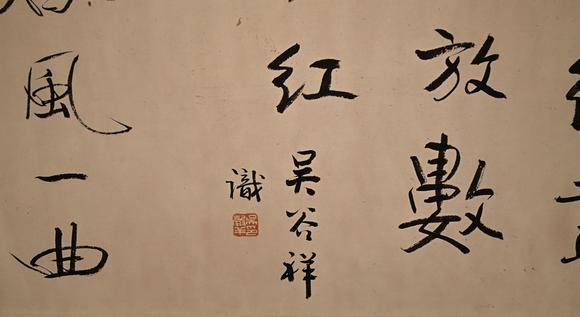 放數
紅
吳谷祥
識
風一曲